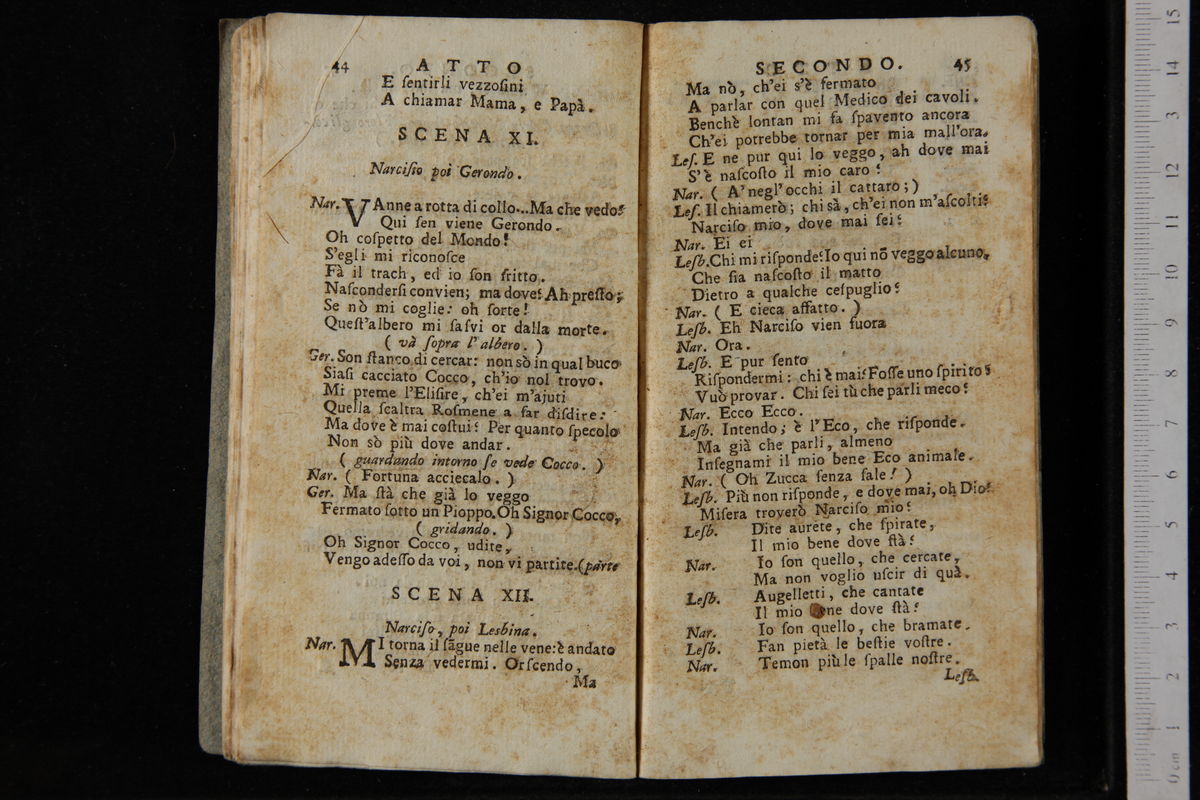 44 ATTO
E ſentirli vezzoſini
A chiamar Mama, e Papà.
SCENA XI.
Narciſio poi Gerondo.
Nar. VAnne a rotta di collo... Ma che vedo?
Qui ſen viene Gerondo.
Oh coſpetto del Mondo!
S'egli mi riconoſce
Fà il trach, ed io ſon fritto.
Naſconderſi convien; ma dove? Ah preſto;
Se nò mi coglie: oh ſorte!
Queſt'albero mi ſalvi or dalla morte.
( và ſopra l'albero. )
Ger. Son ſtanco di cercar: non sò in qual buco
Siaſi cacciato Cocco, ch'io nol trovo.
Mi preme l'Eliſire, ch'ei m'ajuti
Quella ſcaltra Roſmene a far diſdire:
Ma dove è mai coſtui? Per quanto ſpecolo
Non sò più dove andar.
( guardando intorno ſe vede Cocco. )
Nar. ( Fortuna acciecalo. )
Ger. Ma ſtà che già lo veggo
Fermato ſotto un Pioppo. Oh Signor Cocco,
( gridando. )
Oh Signor Cocco, udite,
Vengo adeſſo da voi, non vi partite. (parte
SCENA XII.
Narciſo, poi Lesbina.
Nar. MI torna il ſãgue nelle vene: è andato
Senza vedermi. Or ſcendo,
Ma
SECONDO. 45
Ma nò, ch'ei s'è fermato
A parlar con quel Medico dei cavoli.
Benchè lontan mi fa ſpavento ancora
Ch'ei potrebbe tornar per mia mall'ora.
Leſ. E ne pur qui lo veggo, ah dove mai
S'è naſcoſto il mio caro?
Nar. ( A' negl'occhi il cattaro; )
Leſ. Il chiamerò; chi sà, ch'ei non m'aſcolti?
Narciſo mio, dove mai ſei?
Nar. Ei ei
Leſb. Chi mi riſponde? Io qui nõ veggo alcuno,
Che ſia naſcoſto il matto
Dietro a qualche ceſpuglio?
Nar. ( E cieca affatto. )
Leſb. Eh Narciſo vien fuora
Nar. Ora.
Leſb. E pur ſento
Riſpondermi: chi è mai? Foſſe uno ſpirito?
Vuò provar. Chi ſei tù che parli meco?
Nar. Ecco Ecco.
Leſb. Intendo; è l'Eco, che riſponde.
Ma già che parli, almeno
Inſegnami il mio bene Eco animale.
Nar. ( Oh Zucca ſenza ſale! )
Leſb. Più non riſponde, e dove mai, oh Dio!
Miſera troverò Narciſo mio?
Leſb. Dite aurete, che ſpirate,
Il mio bene dove ſtà?
Nar. Io ſon quello, che cercate,
Ma non voglio uſcir di quà.
Leſb. Augelletti, che cantate
Il mio bene dove ſtà?
Nar. Io ſon quello, che bramate.
Leſb. Fan pietà le beſtie voſtre.
Nar. Temon più le ſpalle noſtre.
Leſb.